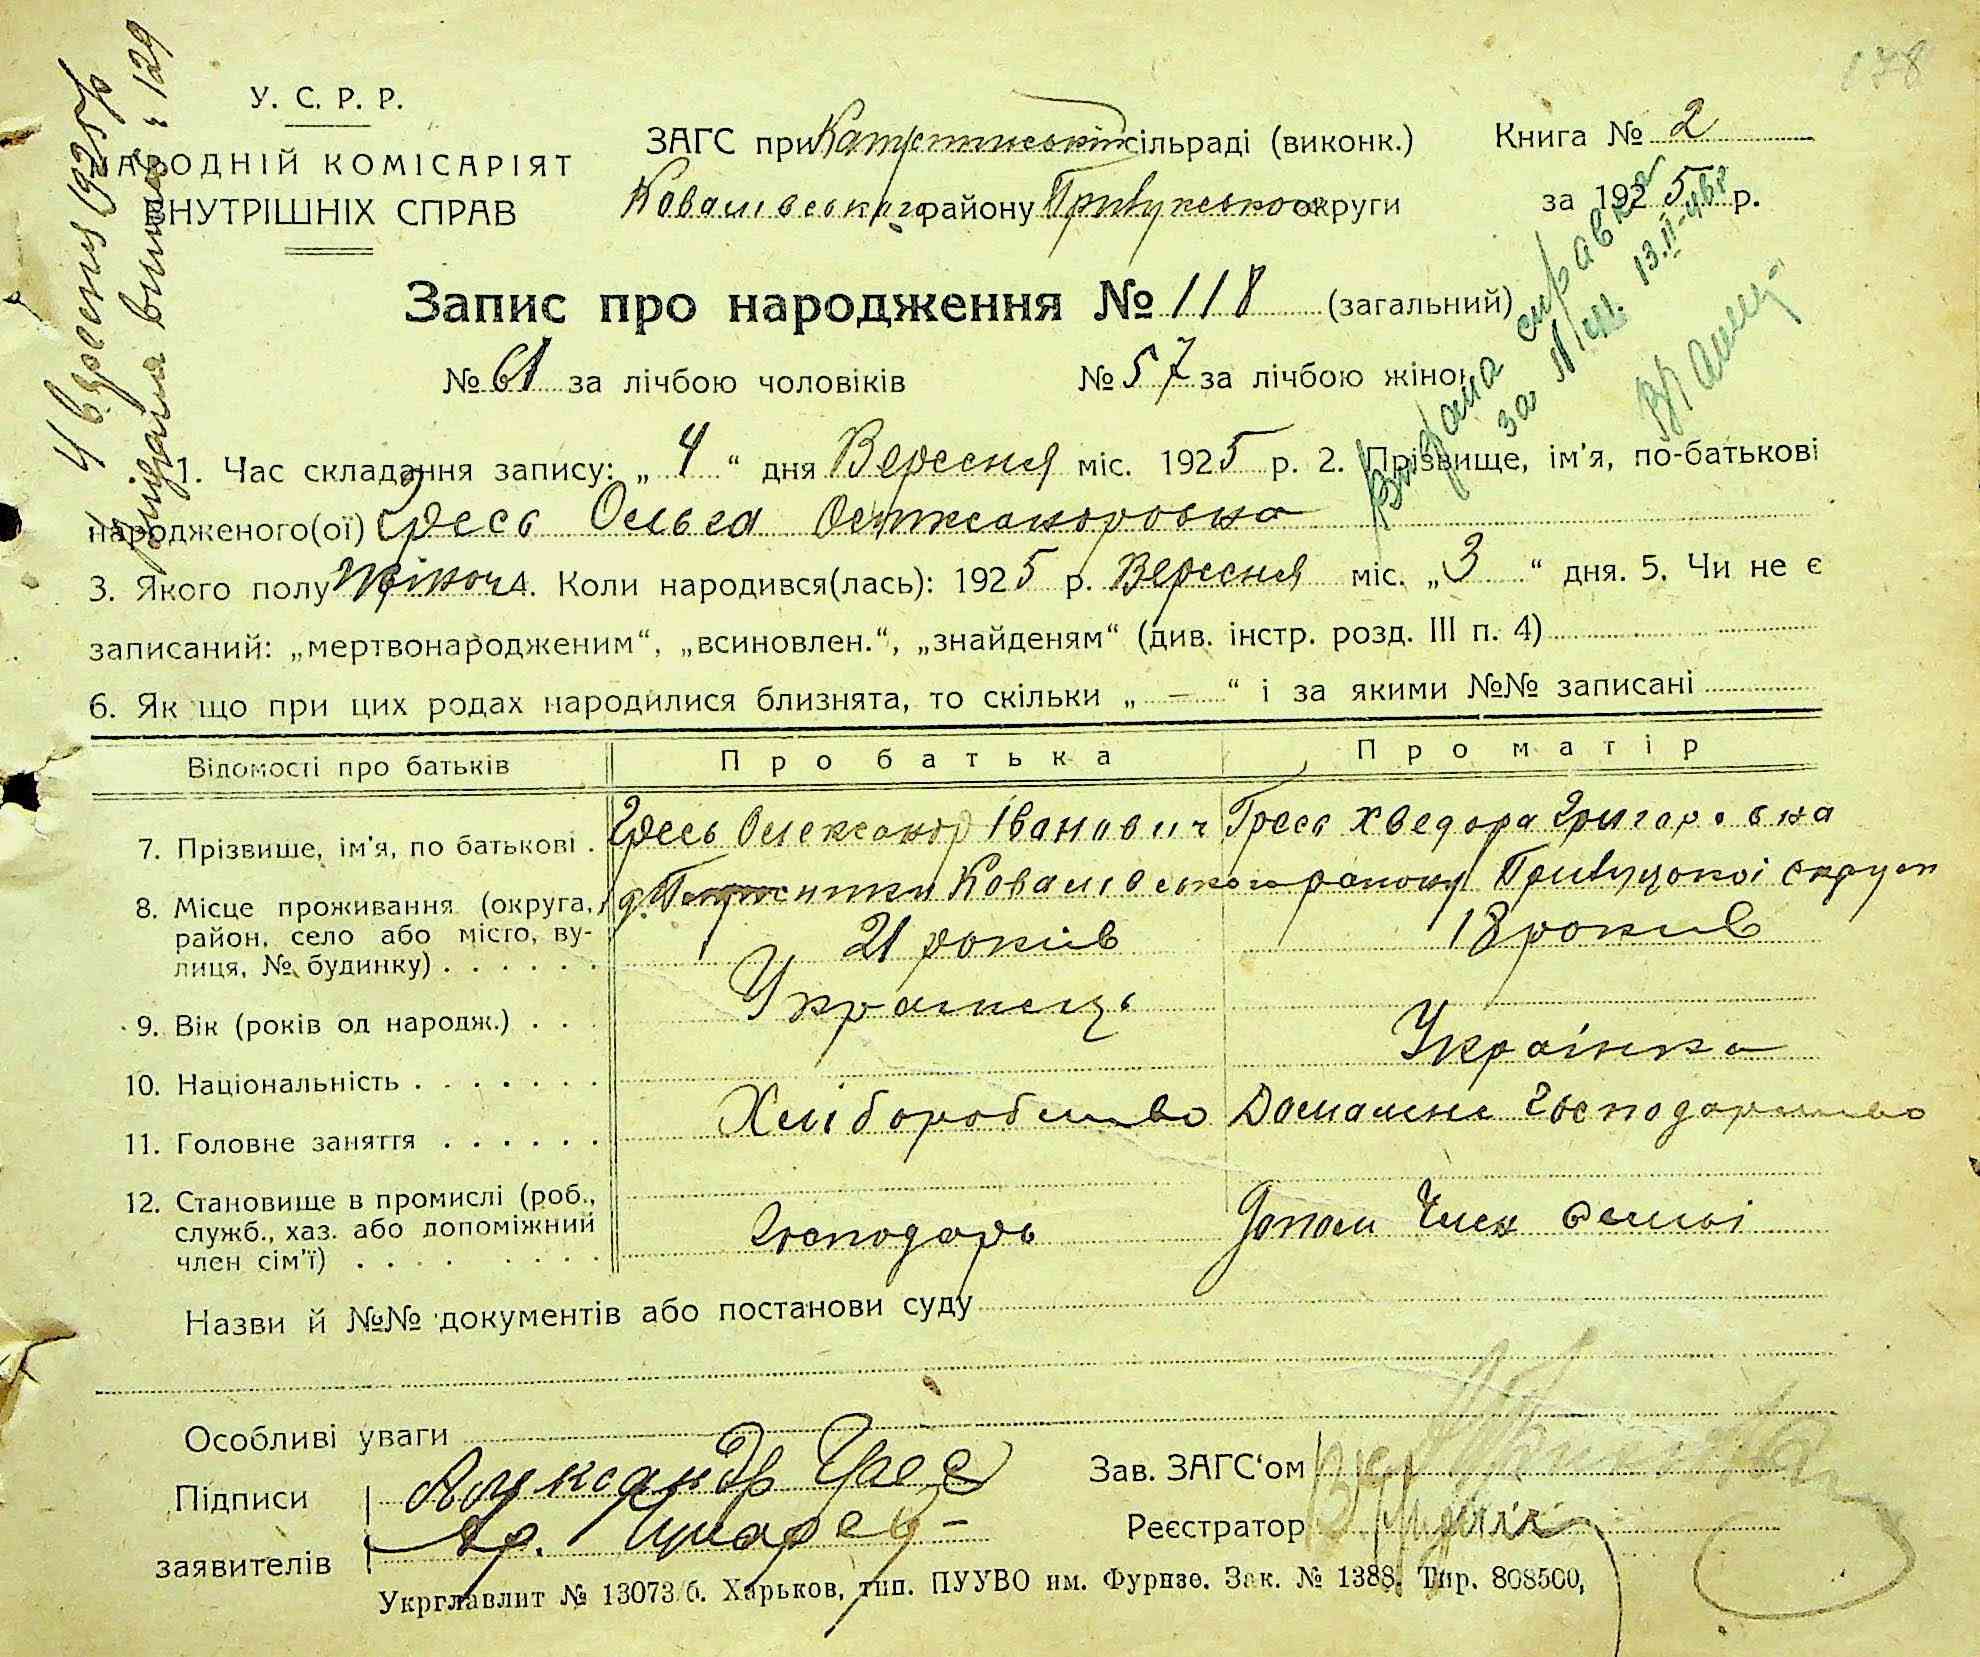 178
У. С. Р. Р.
НАРОДНІЙ КОМІСАРІЯТ
ВНУТРІШНІХ СПРАВ
ЗАГС при сільраді (виконк.)
Ковалівського району Прилуцького округи
Книга № 2
за 1925 р.
4 Вересня 1925 р
видана випись № 129
Видана справка
за № 13.II-
Запис про народження № 118 (загальний)
№ 61 за лічбою чоловіків № 57 за лічбою жінок
1. Час складання запису: „ 4 “ дня Вересня міс. 1925 р. 2. Прізвище, ім'я, по-батькові
народженого(ої) Гресь Ольга Олександровна
3. Якого полу жіноч 4. Коли народився(лась): 1925 р. Вересня міс. „ 3 “ дня. 5. Чи не є
записаний: „мертвонародженим“, „всиновлен.“, „знайденям“ (див. інстр. розд. III п. 4)
6. Як що при цих родах народилися близнята, то скільки „ — “ і за якими №№ записані
Відомості про батьків Про батька Про матір
7. Прізвише, ім'я, по батькові . Гресь Олександр Іванович Гресь Хведора Григоровна
8. Місце проживання (округа, район, село або місто, вулиця, № будинку) . . . . . . Ковалівського району Прилуцької округи
21 років 18 років
9. Вік (років од народж.) . . . Українець Українка
10. Національність . . . . . . .
11. Головне заняття . . . . . . Хліборобство Домашнє господарство
12. Становище в промислі (роб., служб., хаз. або допоміжний член сім'ї) . . . . . . . . Господарь Допом Член семьі
Назви й №№ документів або постанови суду
Особливі уваги
Підписи Александр Гресь
заявителів
Зав. ЗАГС‘ом
Реєстратор
Укрглавлит № 13073/б. Харьков, тип. ПУУВО им. Фурнзе. Зак. № 1388. Тир. 808500,